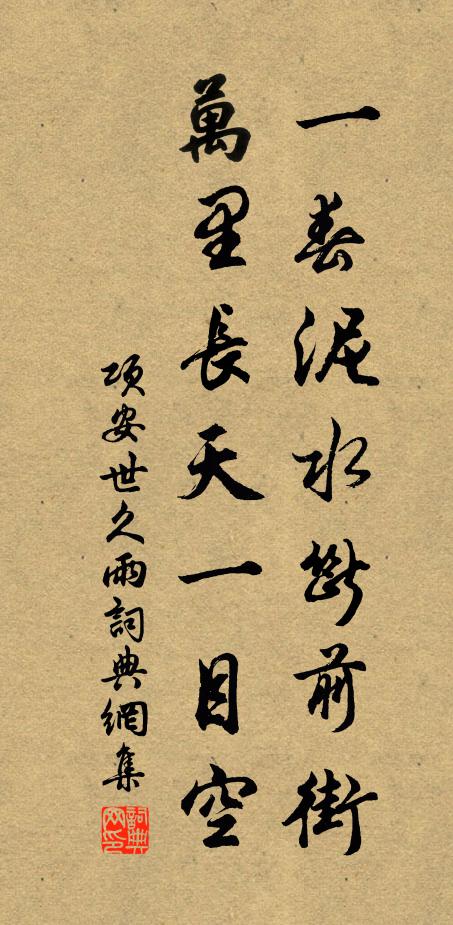 一春泥水斷前街
萬里長天一目空
項安世久雨詞典網集
詞典網印